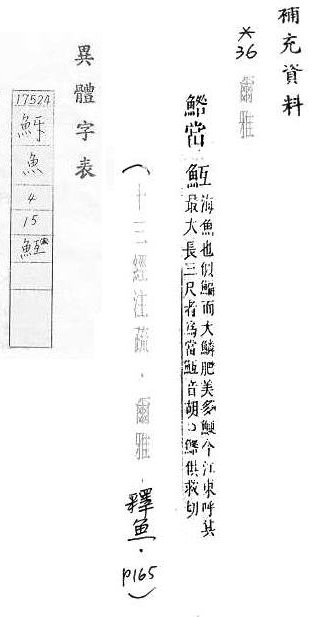 補充資料
*36 爾雅
鯦當魱
海魚也似鯿而大鱗肥美多鯁今江東呼其
最大長三尺者為當魱音胡○鯦供救切
(十三經注疏.爾雅.釋魚.p165)
異體字表
17524
魚
4
15
魱